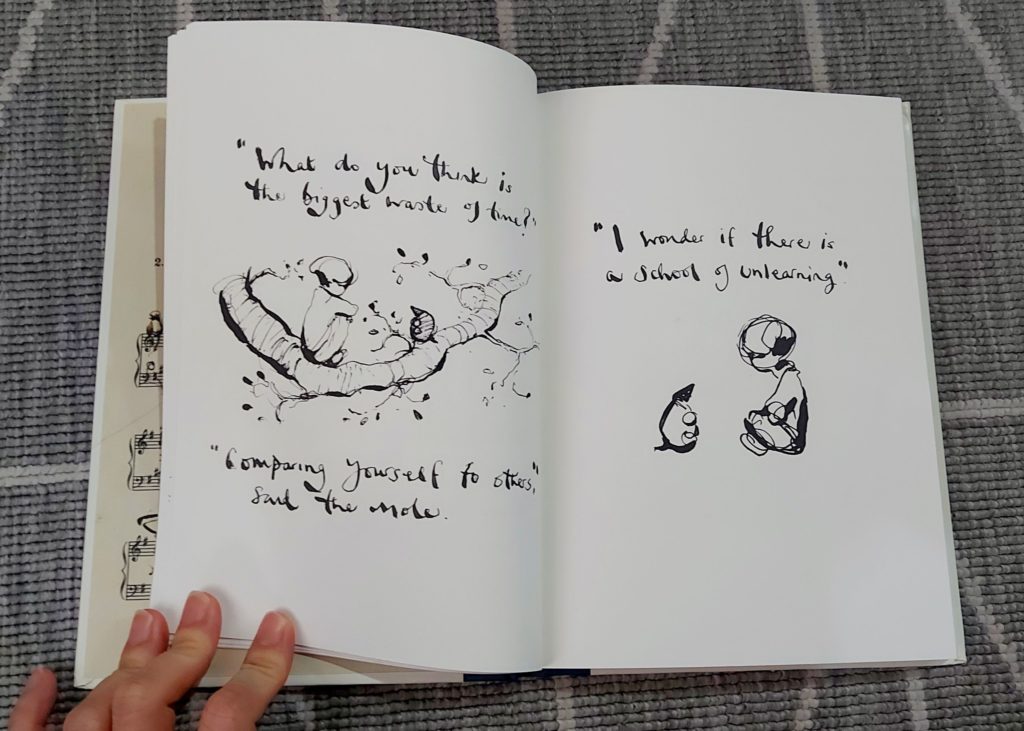 "What do you think is
the biggest waste of time?"
"Comparing yourself to others,"
said the mole.
"I wonder if there is
a school of unlearning".
2.